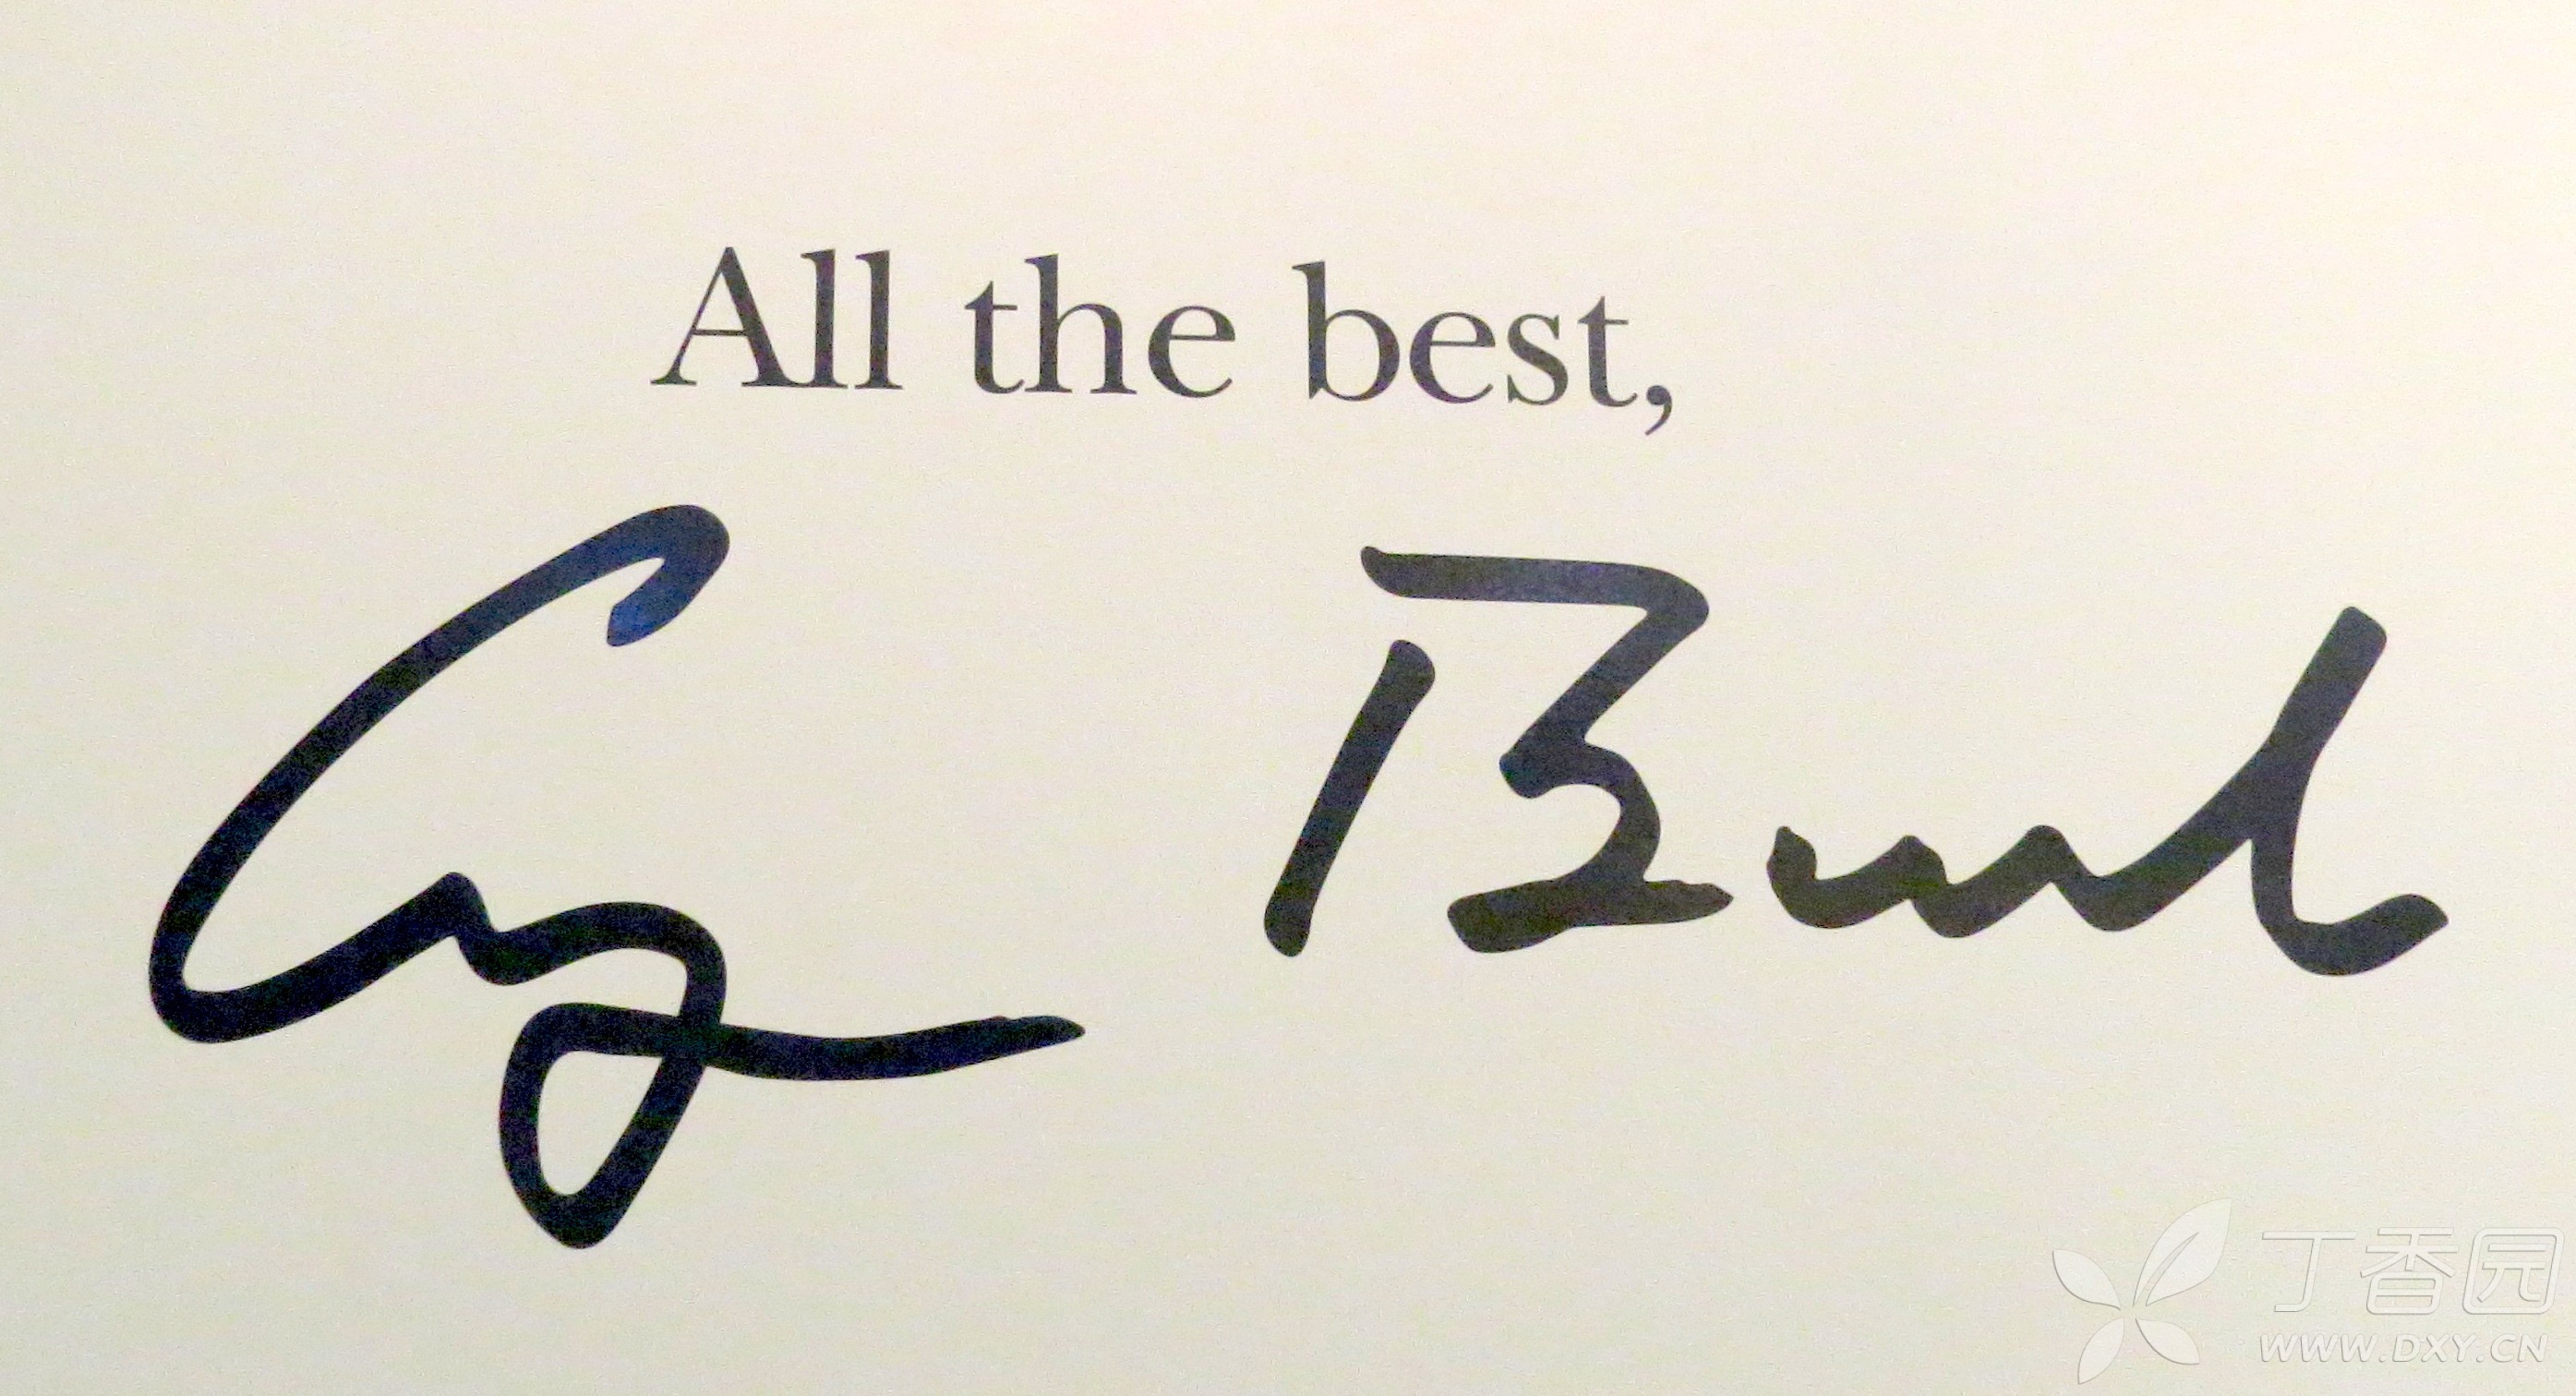 All the best,
丁香园
WWW.DXY.CN